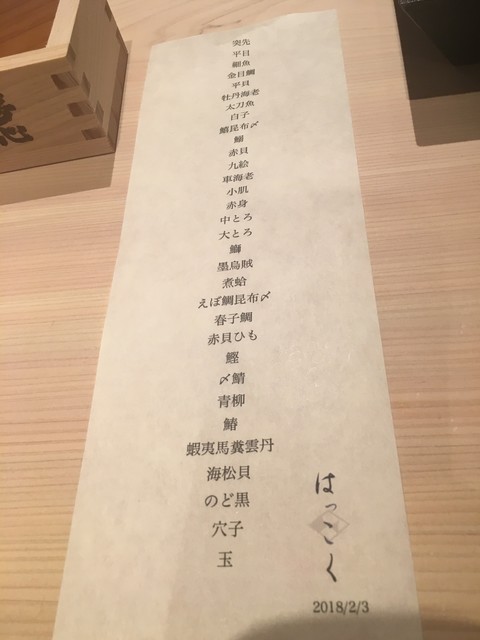 突先
平目
細魚
金目鯛
平貝
牡丹海老
太刀魚
白子
鱚昆布〆
鰯
赤貝
九絵
車海老
小肌
赤身
中とろ
大とろ
鰤
墨烏賊
煮蛤
えぼ鯛昆布〆
春子鯛
赤貝ひも
鰹
〆鯖
青柳
鰆
蝦夷馬糞雲丹
海松貝
のど黒
穴子
玉
はっこく
2018/2/3